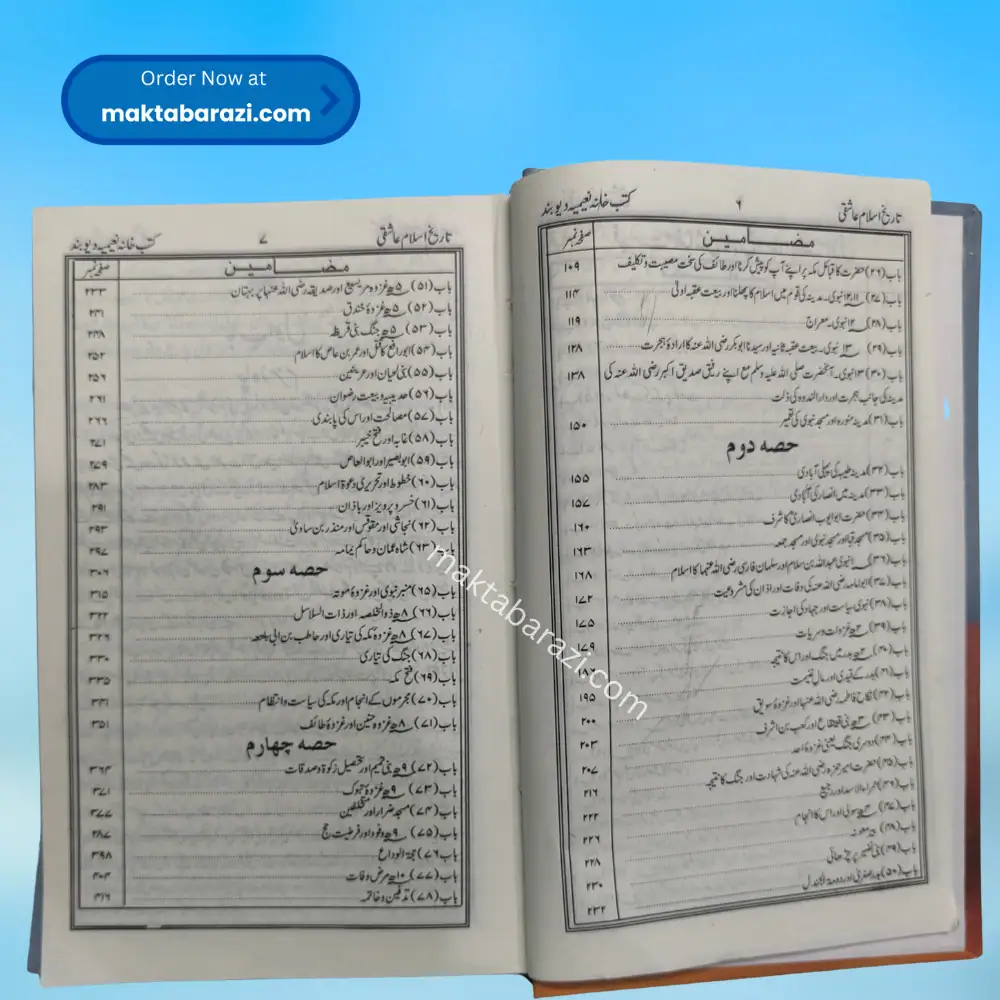 Order Now at
maktabarazi.com
تاریخ اسلام عاشقی ۶ کتب خانہ نعیمیہ دیوبند
مضامین صفحہ نمبر
باب (۲۶) حضرت کا قبائل مکہ پر اپنے آپ کو پیش کرنا اور طائف کی سخت مصیبت و تکلیف ۱۰۹
باب (۲۷) ۱۱، ۱۲ نبوی۔ مدینہ کی قوم میں اسلام کا پھیلنا اور بیعت عقبہ اولیٰ ۱۱۴
باب (۲۸) ۱۲ نبوی۔ معراج ۱۱۹
باب (۲۹) ۱۳ نبوی۔ بیعت عقبہ ثانیہ اور سیدنا ابوبکر رضی اللہ عنہ کا ارادۂ ہجرت ۱۲۸
باب (۳۰) ۱۳ نبوی۔ آنحضرت صلی اللہ علیہ وسلم مع اپنے رفیق صدیق اکبر رضی اللہ عنہ کی ۱۳۸
مدینہ کی جانب ہجرت اور دار الندوہ کی ذلت
باب (۳۱) مدینہ منورہ اور مسجد نبوی کی تعمیر ۱۵۰
حصہ دوم
باب (۳۲) مدینہ طیبہ کی پہلی آبادی ۱۵۵
باب (۳۳) مدینہ میں انصار کی آبادی ۱۵۷
باب (۳۴) حضرت ابو ایوب انصاریؓ کا شرف ۱۶۰
باب (۳۵) مسجد قبا اور مسجد نبوی اور مسجد جمعہ ۱۶۳
باب (۳۶) نبوی عبداللہ بن سلام اور سلمان فارسی رضی اللہ عنہما کا اسلام ۱۶۸
باب (۳۷) ابو امامہ رضی اللہ عنہ کی وفات اور اذان کی مشروعیت ۱۷۲
باب (۳۸) نبوی سیاست اور جہاد کی اجازت ۱۷۵
باب (۳۹) ۲ھ غزوات و سریات ۱۷۹
باب (۴۰) ۲ھ بدر میں جنگ اور اس کا نتیجہ
باب (۴۱) بدر کے قیدی اور مال غنیمت ۱۹۵
باب (۴۲) نکاح فاطمہ رضی اللہ عنہا اور غزوہ سویق ۲۰۰
باب (۴۳) ۳ھ بنی قینقاع اور کعب بن اشرف ۲۰۳
باب (۴۴) دوسری جنگ یعنی غزوۂ احد ۲۰۷
باب (۴۵) حضرت امیر حمزہ رضی اللہ عنہ کی شہادت اور جنگ کا نتیجہ ۲۱۶
باب (۴۶) حمراء الاسد اور رجیع ۲۲۲
باب (۴۷) ۴ھ سولی اور اس کا انجام ۲۲۶
باب (۴۸) بیر معونہ ۲۲۸
باب (۴۹) بنی نضیر پر چڑھائی ۲۳۰
باب (۵۰) بدر صغریٰ اور دومۃ الجندل ۲۳۲
تاریخ اسلام عاشقی ۷ کتب خانہ نعیمیہ دیوبند
مضامین صفحہ نمبر
باب (۵۱) ۵ھ غزوہ مریسیع اور صدیقہ رضی اللہ عنہا پر بہتان ۲۳۳
باب (۵۲) ۵ھ غزوۂ خندق ۲۴۱
باب (۵۳) ۵ھ جنگ بنی قریظہ ۲۴۸
باب (۵۴) ابو رافع کا قتل اور عمر بن عاص کا اسلام ۲۵۲
باب (۵۵) بنی لحیان اور عرینین ۲۵۶
باب (۵۶) حدیبیہ و بیعت رضوان ۲۶۱
باب (۵۷) مصالحت اور اس کی پابندی ۲۶۶
باب (۵۸) غابہ اور فتح خیبر ۲۷۱
باب (۵۹) ابو بصیر اور ابو العاص ۲۷۹
باب (۶۰) خطوط اور تحریری دعوۃ اسلام ۲۸۳
باب (۶۱) خسرو پرویز اور باذان ۲۹۱
باب (۶۲) نجاشی اور مقوقس اور منذر بن ساویٰ ۲۹۳
باب (۶۳) شاہ عمان و حاکم یمامہ ۲۹۷
حصہ سوم ۳۰۶
باب (۶۵) منبر نبوی اور غزوۂ موتہ ۳۱۵
باب (۶۶) ۸ھ ذو الخلصہ اور ذات السلاسل ۳۲۲
باب (۶۷) ۸ھ غزوۂ مکہ کی تیاری اور حاطب بن ابی بلتعہ ۳۲۶
باب (۶۸) جنگ کی تیاری ۳۳۰
باب (۶۹) فتح مکہ ۳۳۵
باب (۷۰) مجرموں کے انجام اور مکہ کی سیاست و انتظام ۳۴۱
باب (۷۱) ۸ھ غزوہ حنین اور غزوۂ طائف ۳۵۱
حصہ چہارم
باب (۷۲) ۹ھ بنی تمیم اور تحصیل زکوٰۃ و صدقات ۳۶۴
باب (۷۳) ۹ھ غزوۂ تبوک ۳۷۱
باب (۷۴) مسجد ضرار اور متخلفین ۳۷۷
باب (۷۵) ۹ھ وفود اور فرضیت حج ۲۸۷
باب ۷۶) حجۃ الوداع ۳۹۸
باب (۷۷) ۱۰ھ مرض وفات ۴۰۴
باب (۷۸) تدفین و خاتمہ ۴۱۶
maktabarazi.com